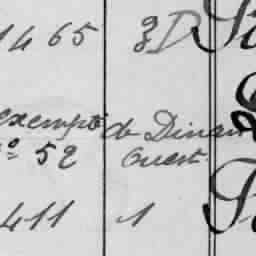 1465 3 D
exempté de Dinan
no 52 Ouest
411 1